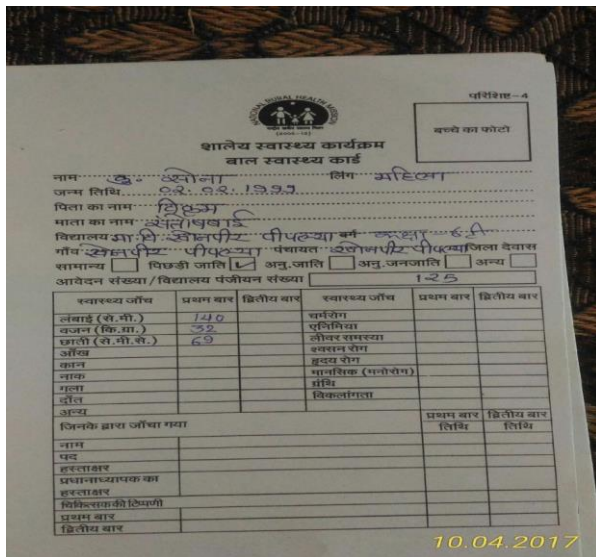 परिशिष्ट-4
NATIONAL RURAL HEALTH MISSION
राष्ट्रीय ग्रामीण स्वास्थ्य मिशन
बच्चे का फोटो
शालेय स्वास्थ्य कार्यक्रम
बाल स्वास्थ्य कार्ड
नाम कु. सोना लिंग महिला
जन्म तिथि 02.02.1999
पिता का नाम विक्रम
माता का नाम संतोषबाई
विद्यालय मा.वि. खोनपीर पीपल्या वर्ग कक्षा
गाँव खोनपीर पीपल्या पंचायत खोनपीर पीपल्या जिला देवास
सामान्य पिछड़ी जाति ✓ अनु.जाति अनु.जनजाति अन्य
आवेदन संख्या/विद्यालय पंजीयन संख्या 125
स्वास्थ्य जाँच प्रथम बार द्वितीय बार स्वास्थ्य जाँच प्रथम बार द्वितीय बार
लंबाई (से.मी.) 140 चर्मरोग
वजन (कि.ग्रा.) 32 एनिमिया
छाती (से.मी.से.) 69 लीवर समस्या
आँख श्वसन रोग
कान हृदय रोग
नाक मानसिक (मनोरोग)
गला ग्रंथि
दाँत विकलांगता
अन्य
जिनके द्वारा जाँचा गया प्रथम बार तिथि द्वितीय बार तिथि
नाम
पद
हस्ताक्षर
प्रधानाध्यापक का
हस्ताक्षर
चिकित्सक की टिप्पणी
प्रथम बार
द्वितीय बार
10.04.2017